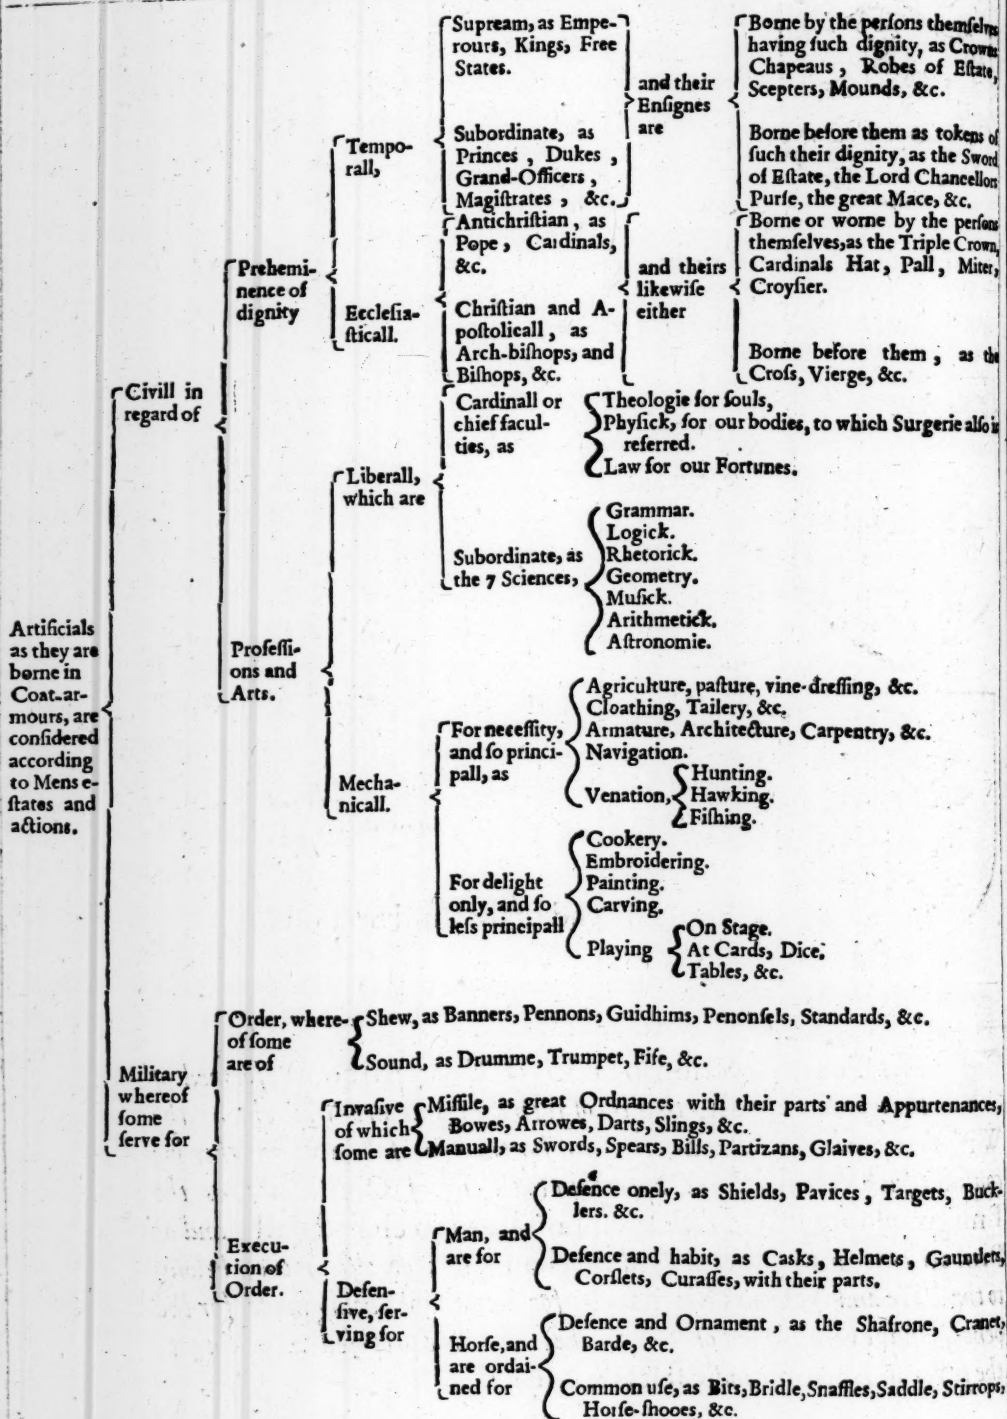 Supream, as Empe-
rours, Kings, Free
States.
Subordinate, as
Princes, Dukes,
Grand-Officers,
Magiſtrates, &c.
and their
Enſignes
are
Borne by the perſons themſelves
having ſuch dignity, as Crownes
Chapeaus, Robes of Eſtate,
Scepters, Mounds, &c.
Borne before them as tokens of
ſuch their dignity, as the Sword
of Eſtate, the Lord Chancellors
Purſe, the great Mace, &c.
Tempo-
rall,
Antichriſtian, as
Pope, Cardinals,
&c.
Chriſtian and A-
poſtolicall, as
Arch-biſhops, and
Biſhops, &c.
and theirs
likewiſe
either
Borne or worne by the perſons
themſelves, as the Triple Crown,
Cardinals Hat, Pall, Miter,
Croyſier.
Borne before them, as the
Croſs, Vierge, &c.
Eccleſia-
ſticall.
Prehemi-
nence of
dignity
Civill in
regard of
Cardinall or
chief facul-
ties, as
Theologie for ſouls,
Phyſick, for our bodies, to which Surgerie alſo is
referred.
Law for our Fortunes.
Liberall,
which are
Subordinate, as
the 7 Sciences,
Grammar.
Logick.
Rhetorick.
Geometry.
Muſick.
Arithmetick.
Aſtronomie.
Artificials
as they are
borne in
Coat-ar-
mours, are
conſidered
according
to Mens e-
ſtates and
actions.
Profeſſi-
ons and
Arts.
Mecha-
nicall.
For neceſſity,
and ſo princi-
pall, as
Agriculture, paſture, vine-dreſſing, &c.
Cloathing, Tailery, &c.
Armature, Architecture, Carpentry, &c.
Navigation.
Venation,
Hunting.
Hawking.
Fiſhing.
For delight
only, and ſo
leſs principall
Cookery.
Embroidering.
Painting.
Carving.
Playing
On Stage.
At Cards, Dice,
Tables, &c.
Military
whereof
ſome
ſerve for
Order, where-
of ſome
are of
Shew, as Banners, Pennons, Guidhims, Penonſels, Standards, &c.
Sound, as Drumme, Trumpet, Fife, &c.
Execu-
tion of
Order.
Invaſive
of which
ſome are
Miſſile, as great Ordnances with their parts and Appurtenances,
Bowes, Arrowes, Darts, Slings, &c.
Manuall, as Swords, Spears, Bills, Partizans, Glaives, &c.
Defen-
ſive, ſer-
ving for
Man, and
are for
Defence onely, as Shields, Pavices, Targets, Buck-
lers. &c.
Defence and habit, as Casks, Helmets, Gauntlets,
Corſlets, Curaſſes, with their parts.
Horſe, and
are ordai-
ned for
Defence and Ornament, as the Shafrone, Cranet,
Barde, &c.
Common uſe, as Bits, Bridle, Snaffles, Saddle, Stirrops,
Horſe-ſhooes, &c.